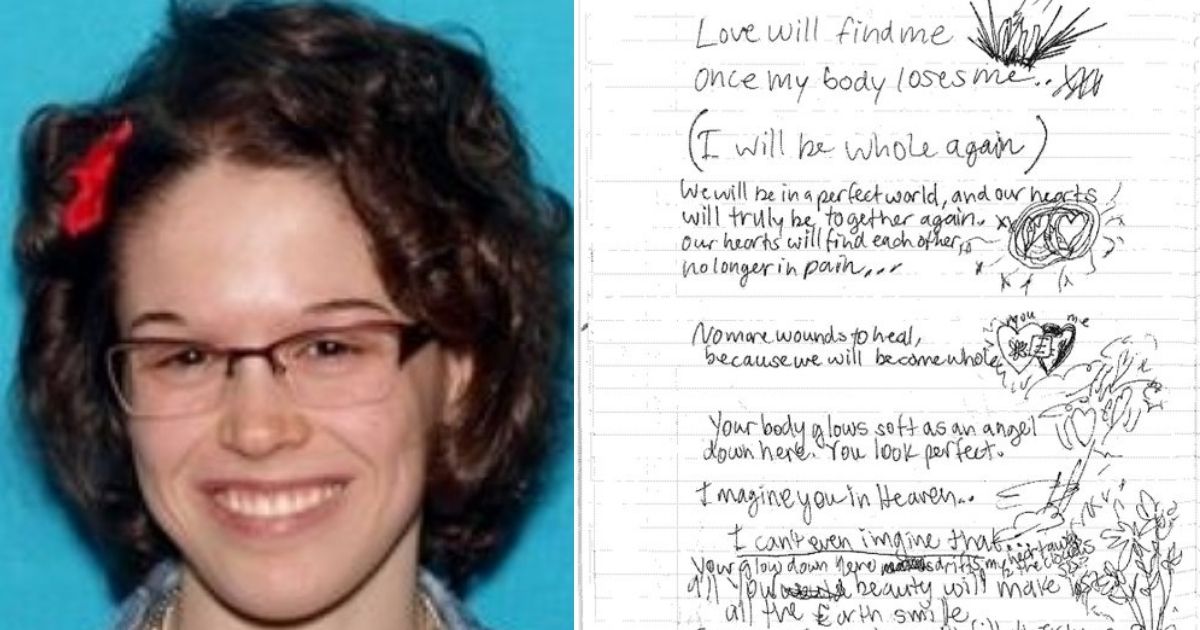 Love will find me
once my body loses me..
(I will be whole again)
We will be in a perfect world, and our hearts
will truly be together again.
our hearts will find each other,
no longer in pain...
you me
No more wounds to heal,
because we will become whole
Your body glows soft as an angel
down here. You look perfect.
I magine you in Heaven..
I can't even imgine that
Your glow down here drifts my heart
all you beauty will make
all the Earth smile